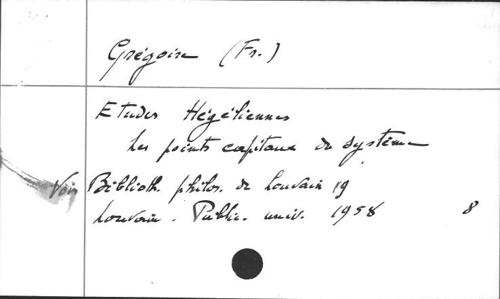 Grégoire (Fr.)
Etudes Hégéliennes
Les points capitaux du système
Voir Biblioth. philos. de Louvain 19
Louvain. Public. univ. 1958 8